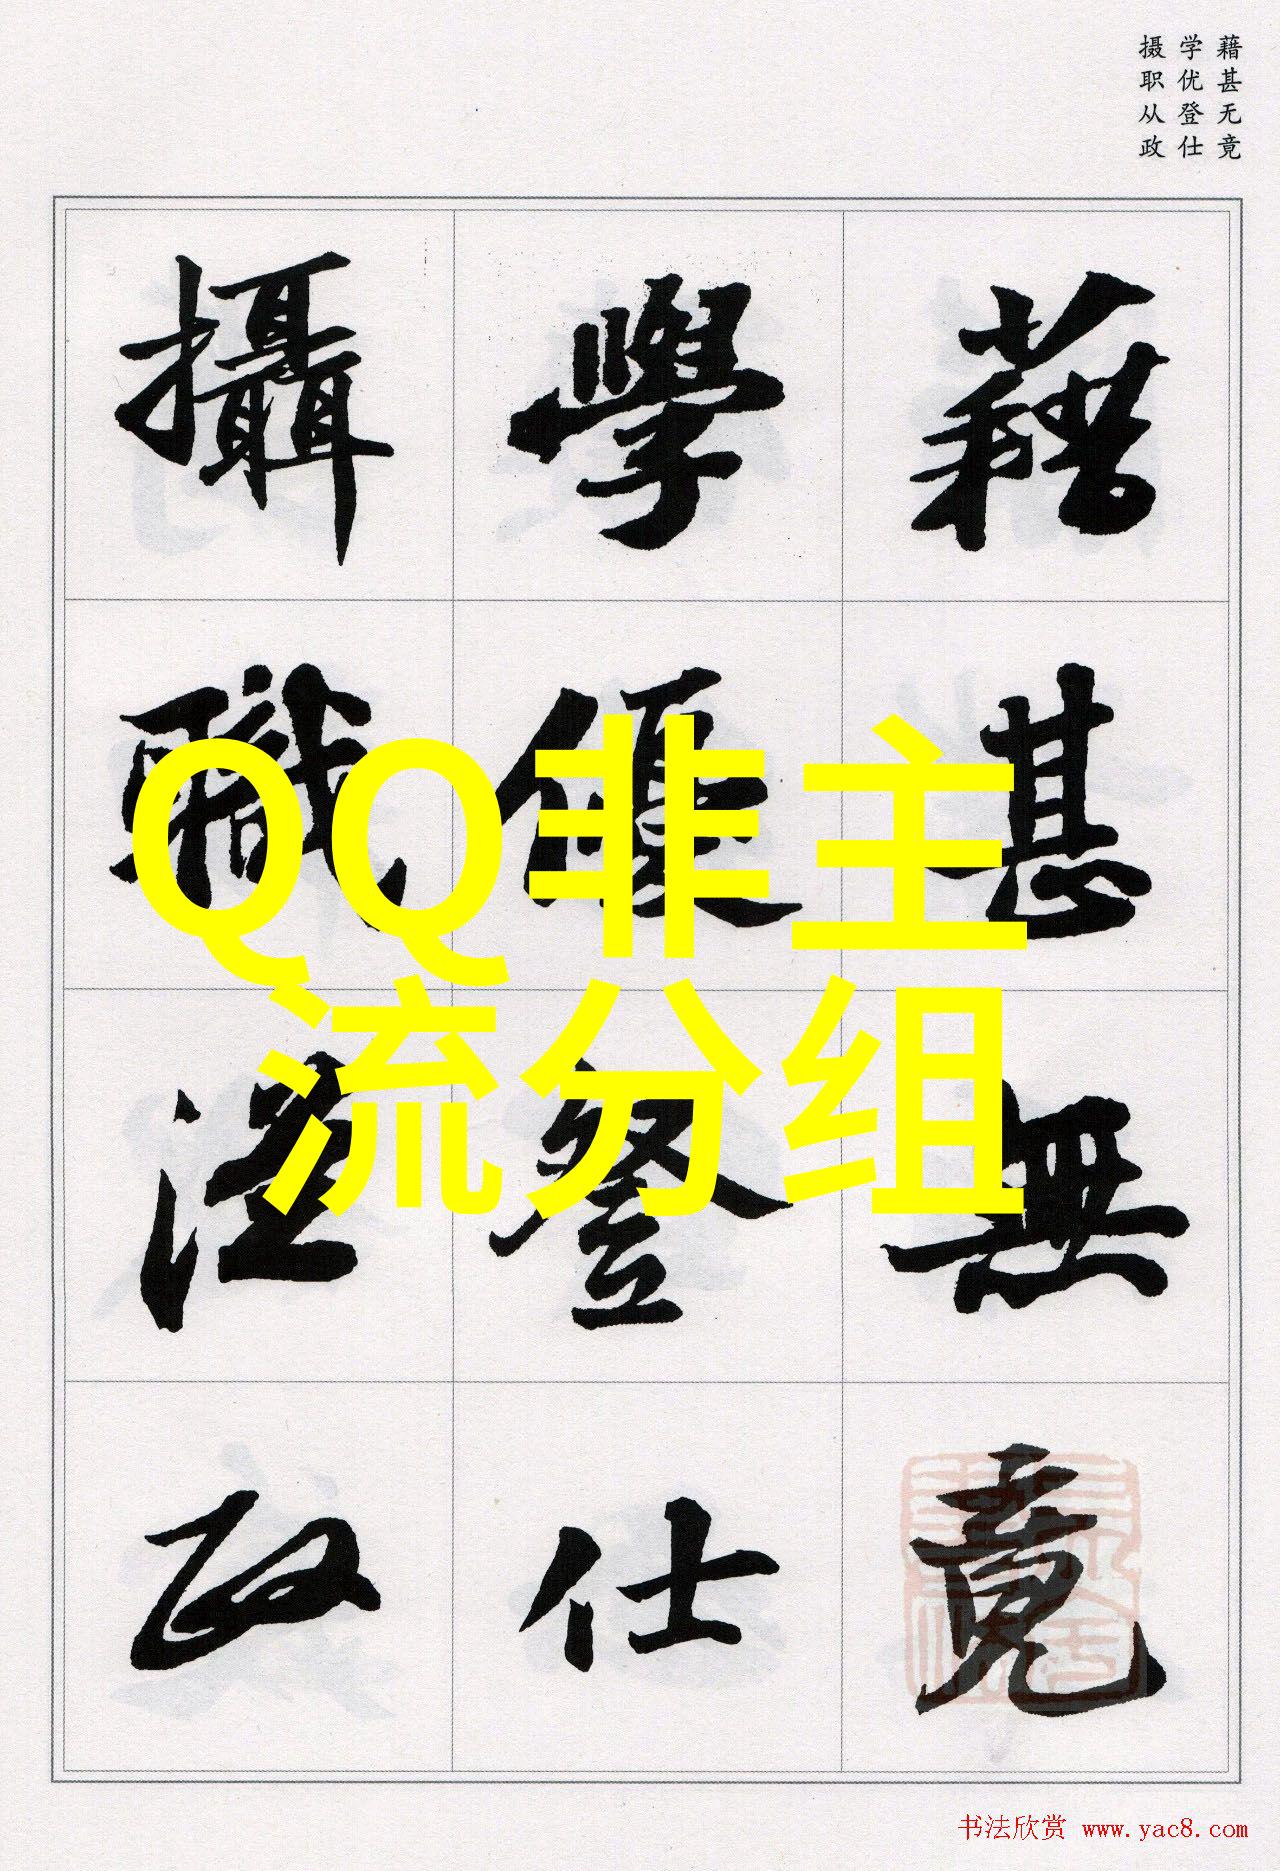 藉甚无竟
学优登仕
摄职从政
藉甚無竟
學優登仕
攝職從政
QQ非主
流分组
书法欣赏 www.yac8.com